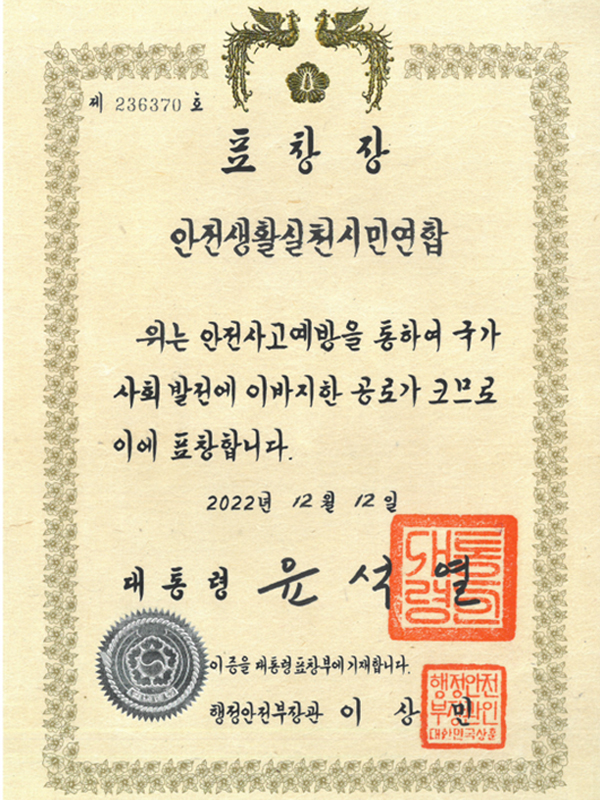 제 236370 호
표창장
안전생활실천시민연합
위는 안전사고예방을 통하여 국가
사회 발전에 이바지한 공로가 크므로
이에 표창합니다.
2022년 12월 12일
대통령 윤석열
대통령인
이 증을 대통령표창부에 기재합니다.
행정안전부장관 이상민
행정안전
부장관인
대한민국상훈